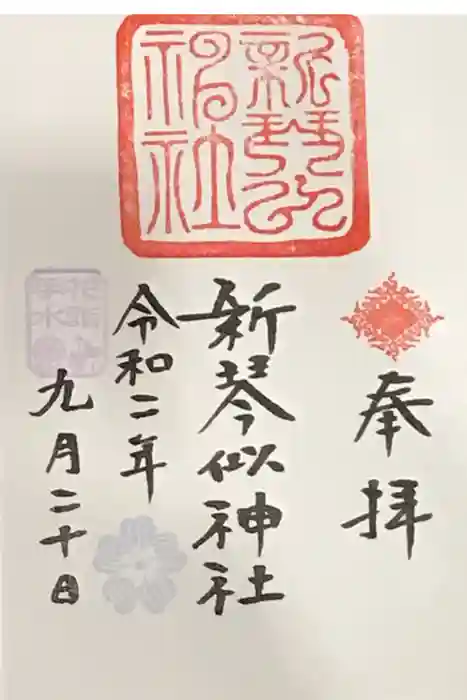 奉拝
新琴似神社
令和二年
九月二十日
新琴似
神社